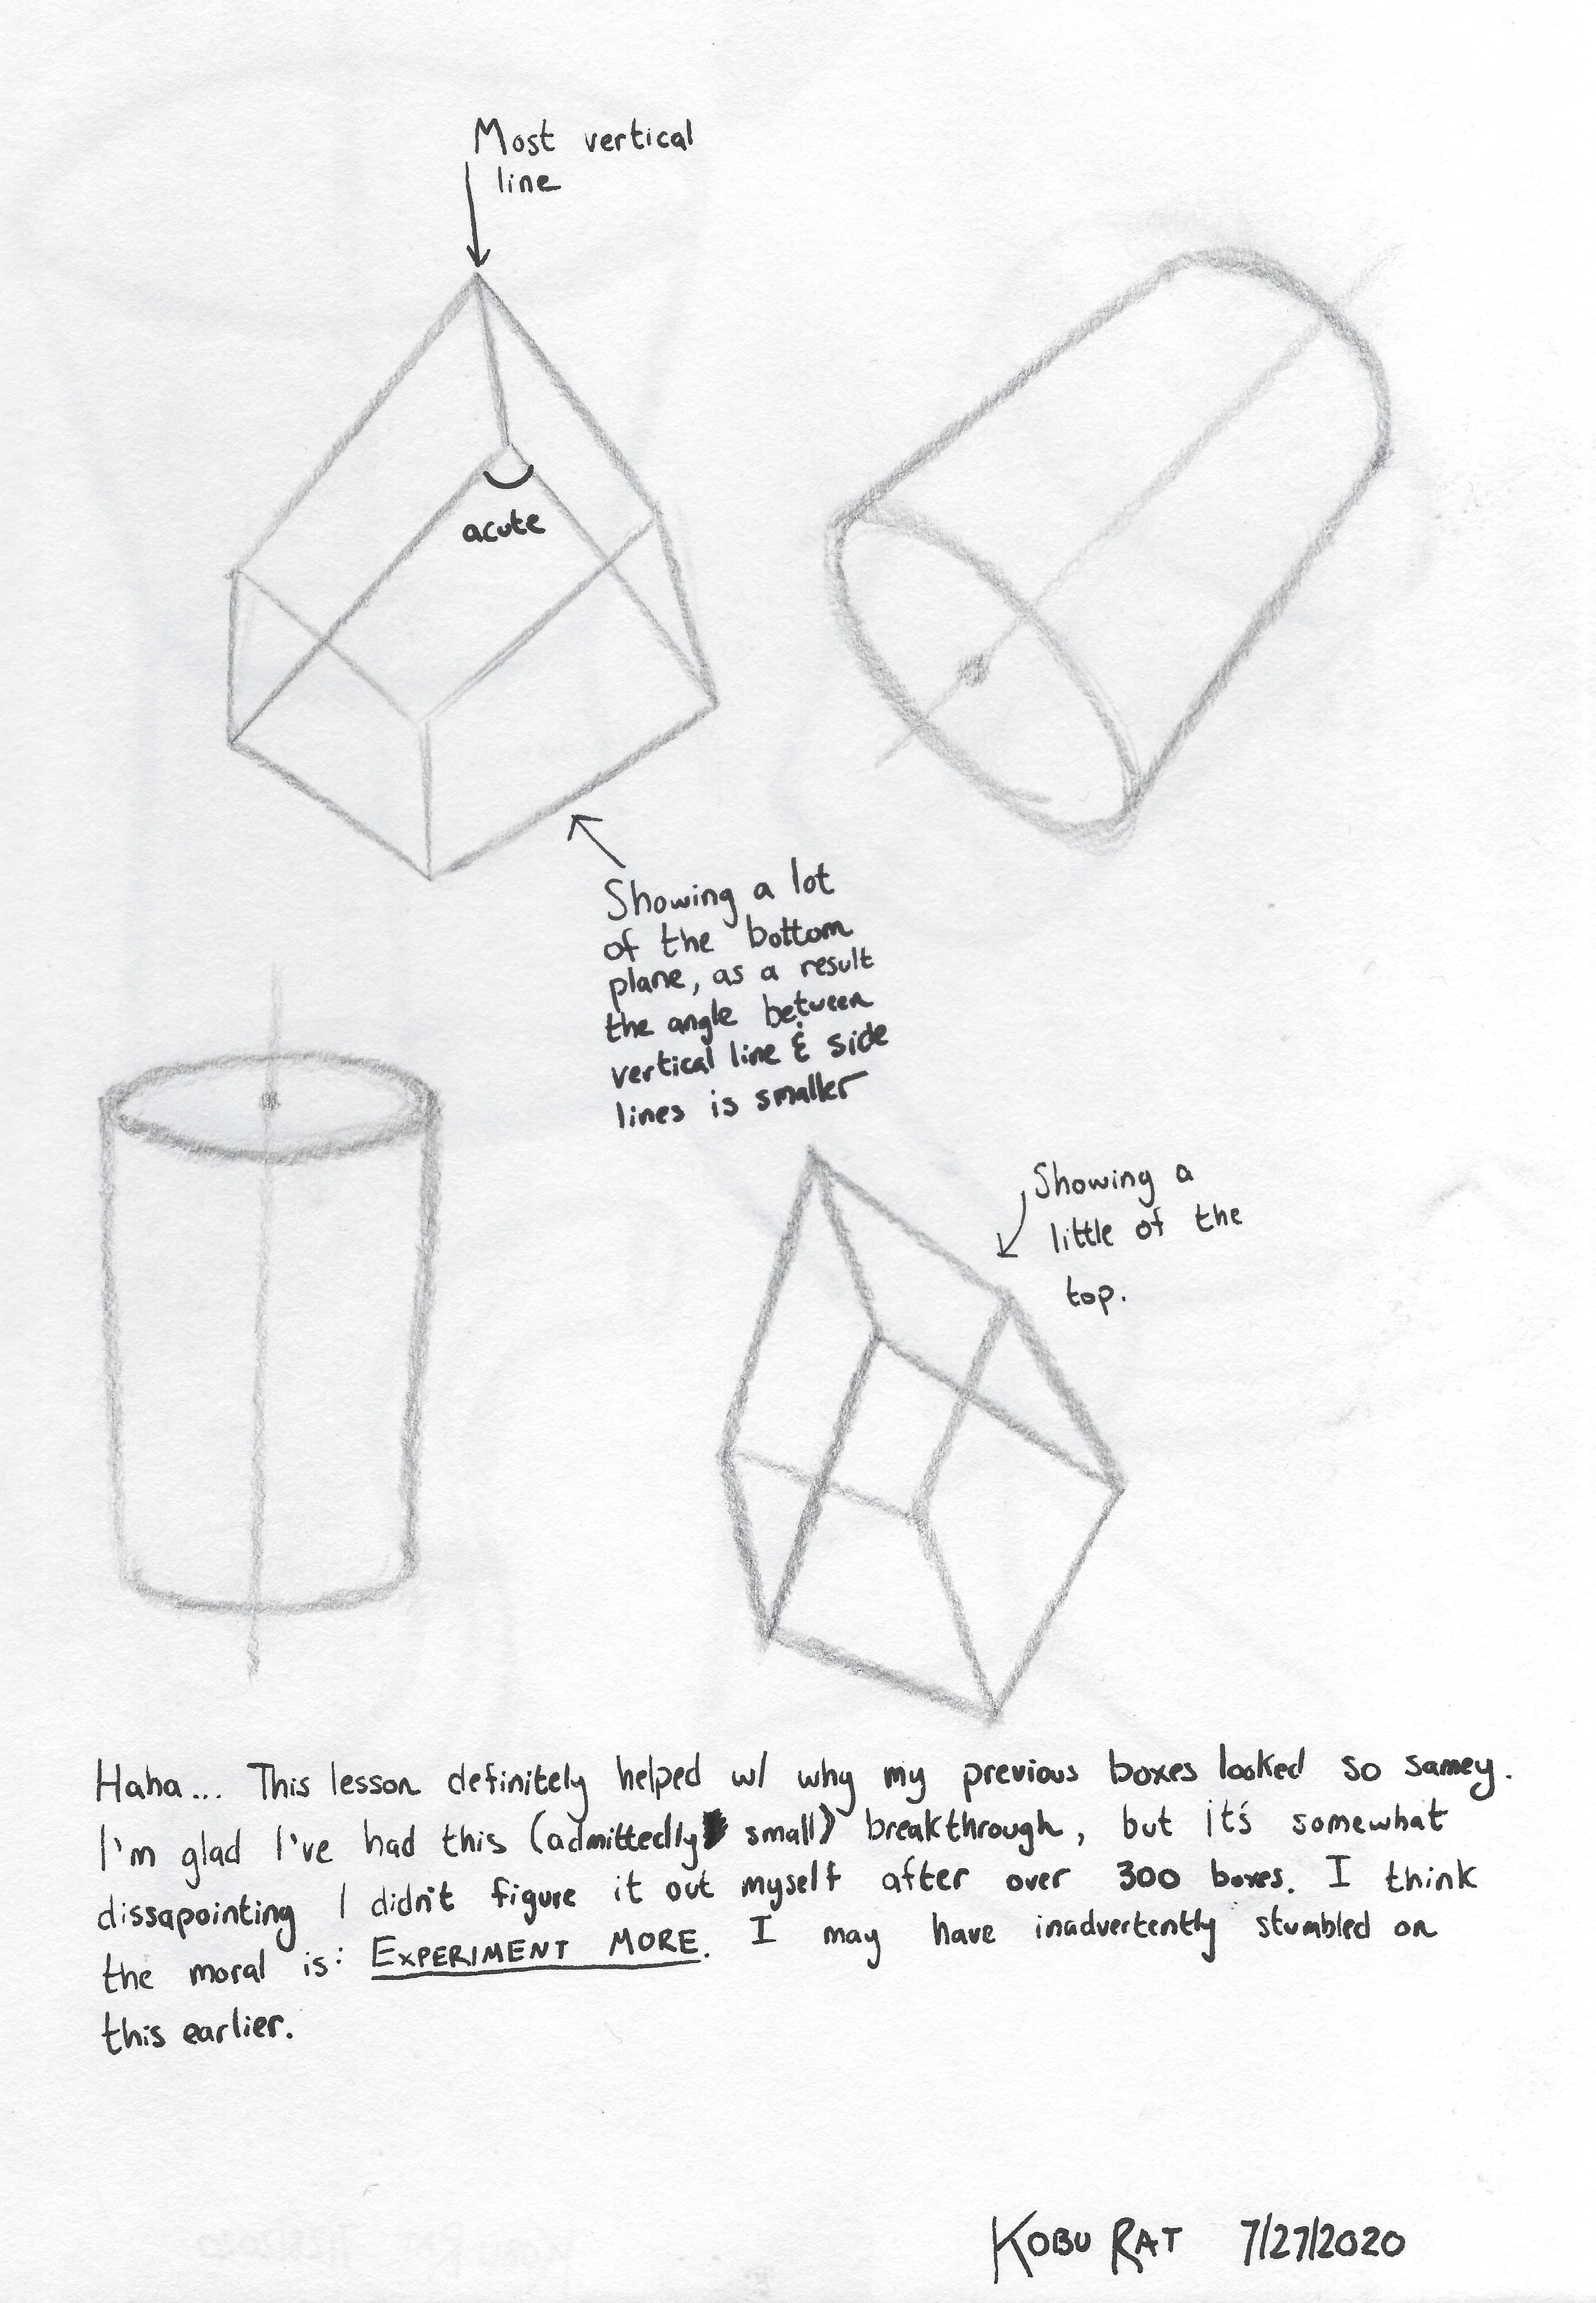 Most vertical
line
acute
Showing a lot
of the bottom
plane, as a result
the angle between
vertical line & side
lines is smaller
Showing a
little of the
top.
Haha... This lesson definitely helped w/ why my previous boxes looked so samey.
I'm glad I've had this (admittedly small) breakthrough, but it's somewhat
dissapointing I didn't figure it out myself after over 300 boxes. I think
the moral is: EXPERIMENT MORE. I may have inadvertently stumbled on
this earlier.
KOBU RAT 7/27/2020